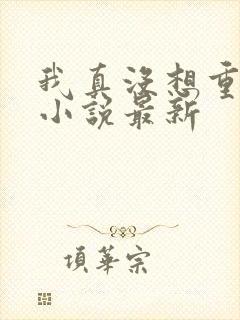 我真沒想重
小說最新
項華宗